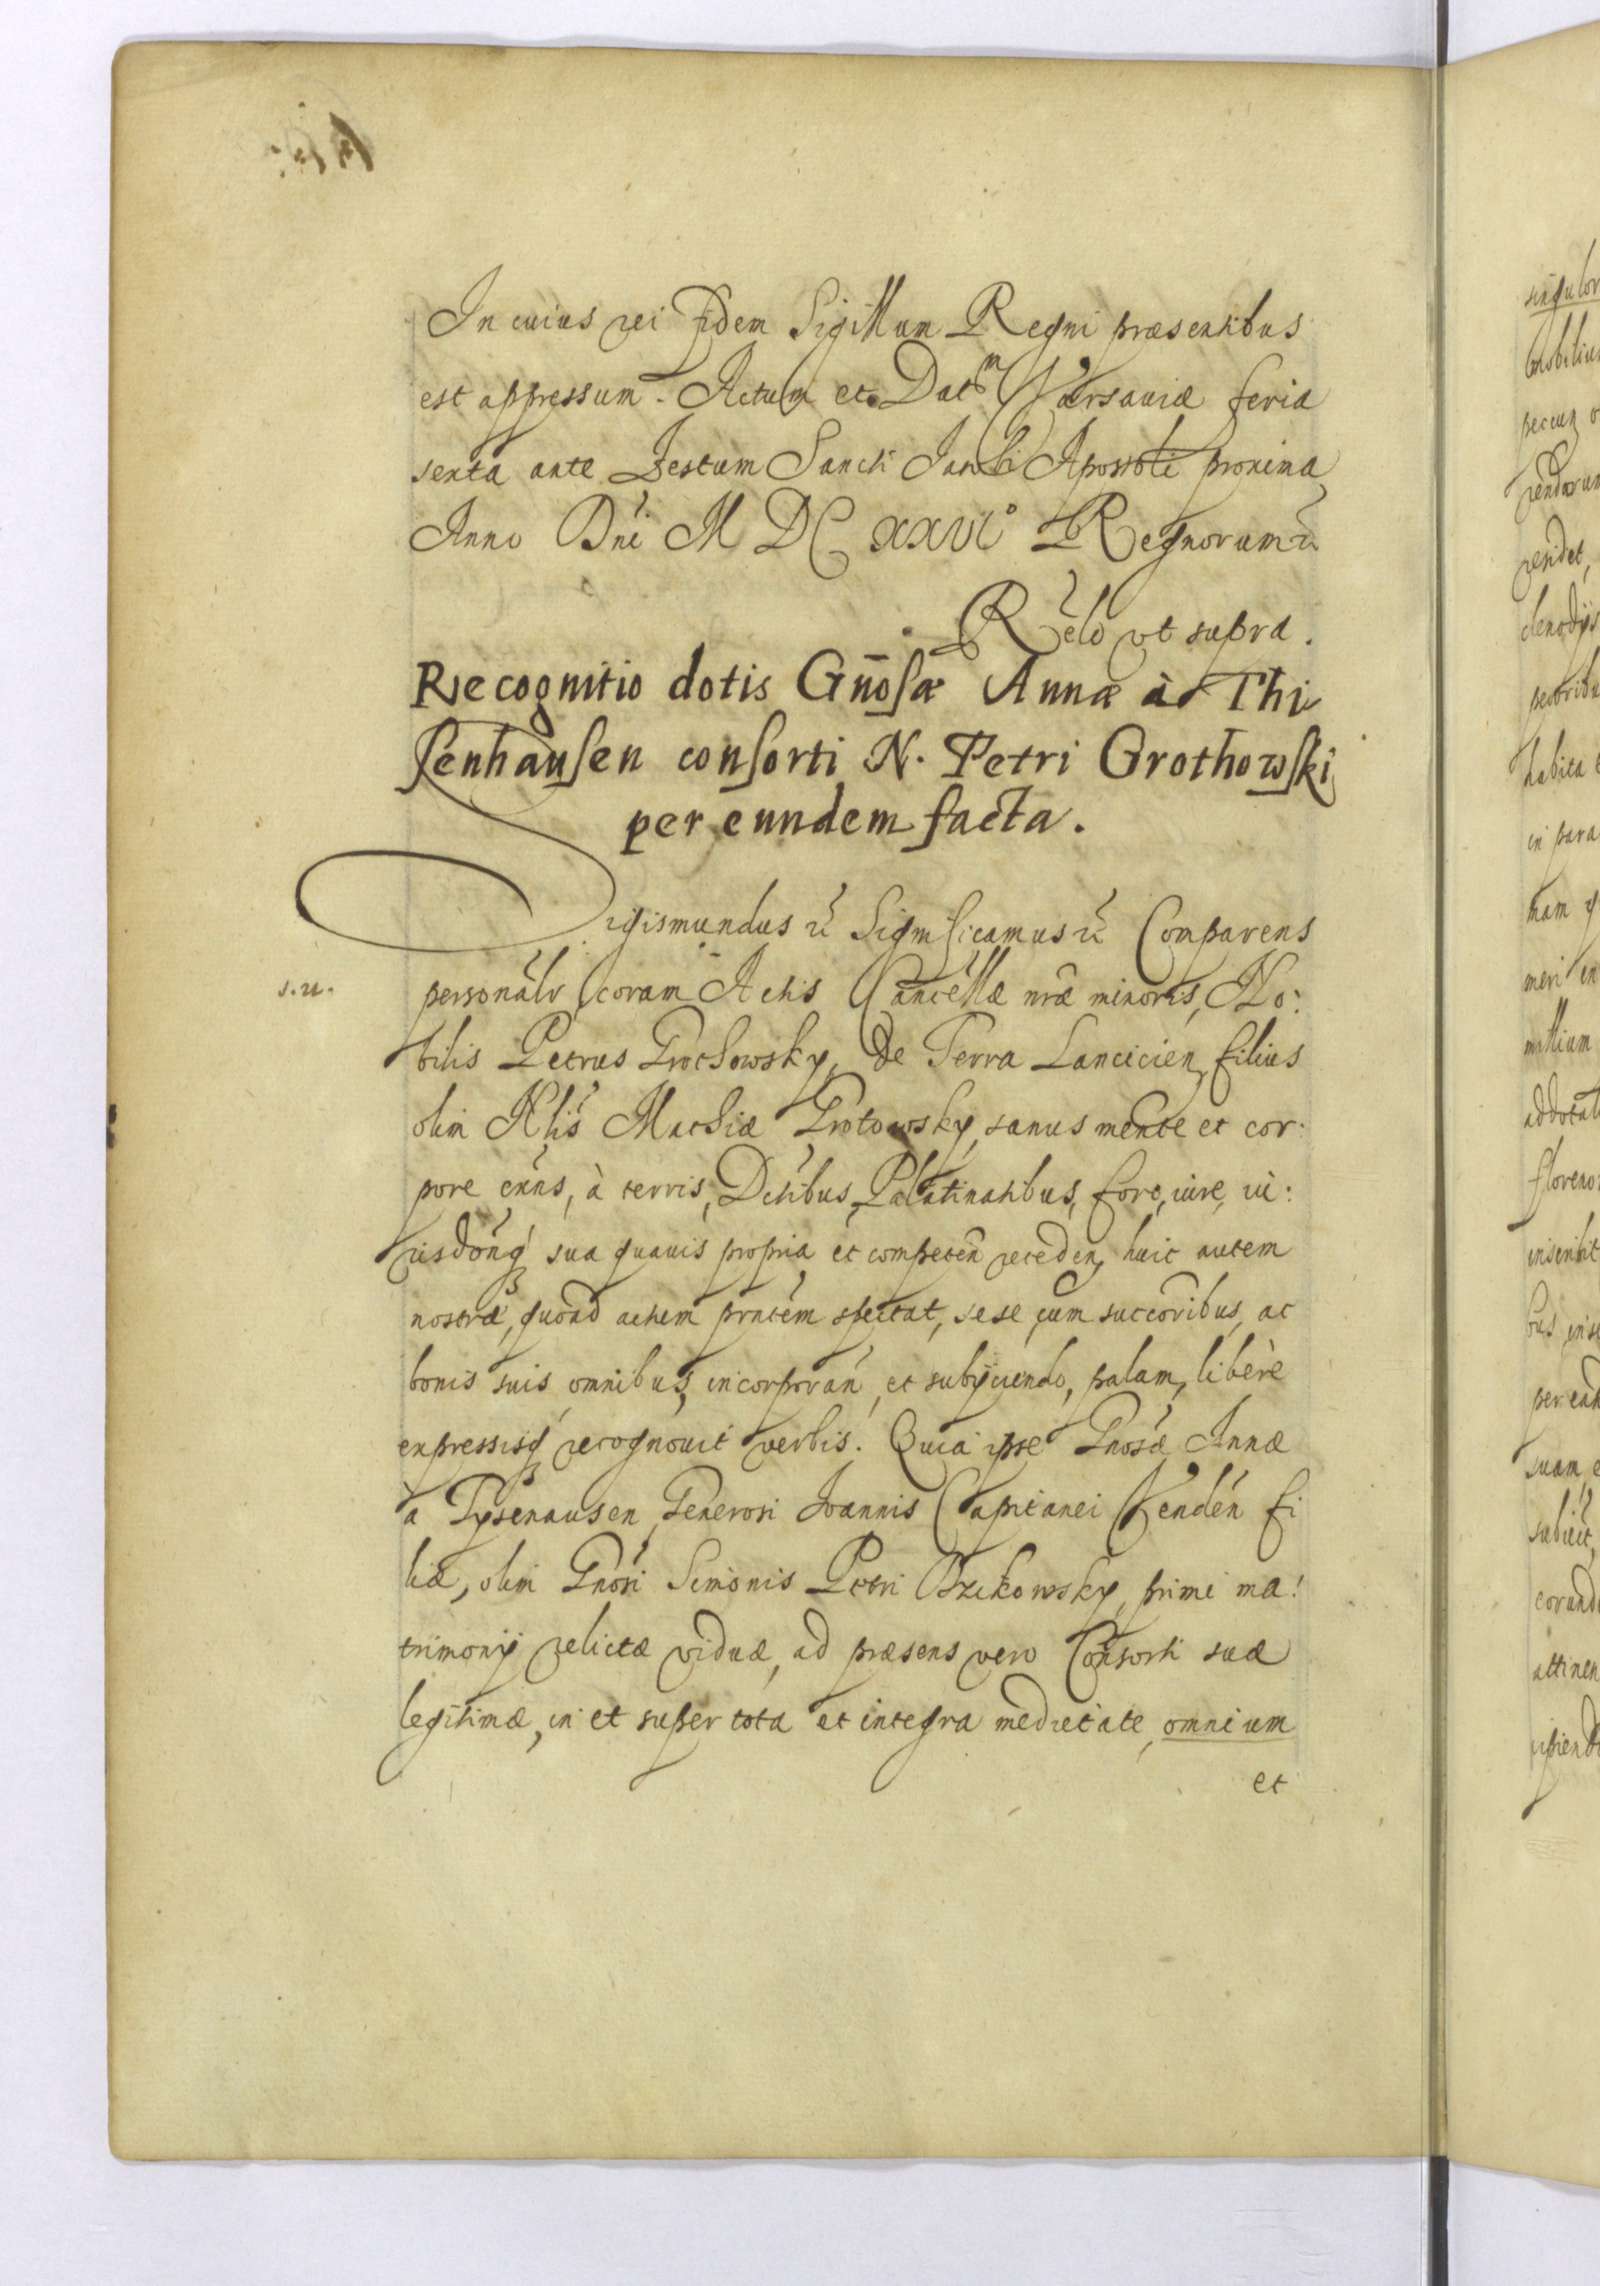 In cuius rei fidem Sigillum Regni præsentibus
est appressum. Actum et Datm Varsauiæ feria
sexta ante Festum Sancti Jacobi Apostoli proxima
Anno Dni M DC XXVI° Regnorum etc
Relo vt supra.
Recognitio dotis Gnosæ Annæ à Thi
senhausen consorti N. Petri Grothowski
per eundem facta.
Sigismundus etc Significamus etc Comparens
s.u. personalr coram Actis Cancellæ nræ minoris, No:
bilis Petrus Grothowsky, de Terra Lancicien, filius
olim Nlis Mathiæ Grotowsky, sanus mente et cor:
pore exns, à terris, Dctibus, Palatinatibus, foro, iure, iu:
risdonq sua quauis propria et competen receden, huic autem
nostræ, quoad actum prntem spectat, sese cum succoribus, ac
bonis suis omnibus, incorporan et subijciendo, palam, liberè
expressisq recognouit verbis. Quia ipse Gnosæ Annæ
a Tysenausen, Generosi Joannis Capitanei Venden fi
liæ, olim Gnosi Simonis Petri Brzikowsky, primi ma:
trimonij relictæ viduæ, ad præsens vero Consorti suæ
legitimæ, in et super tota et integra medietate, omnium
et